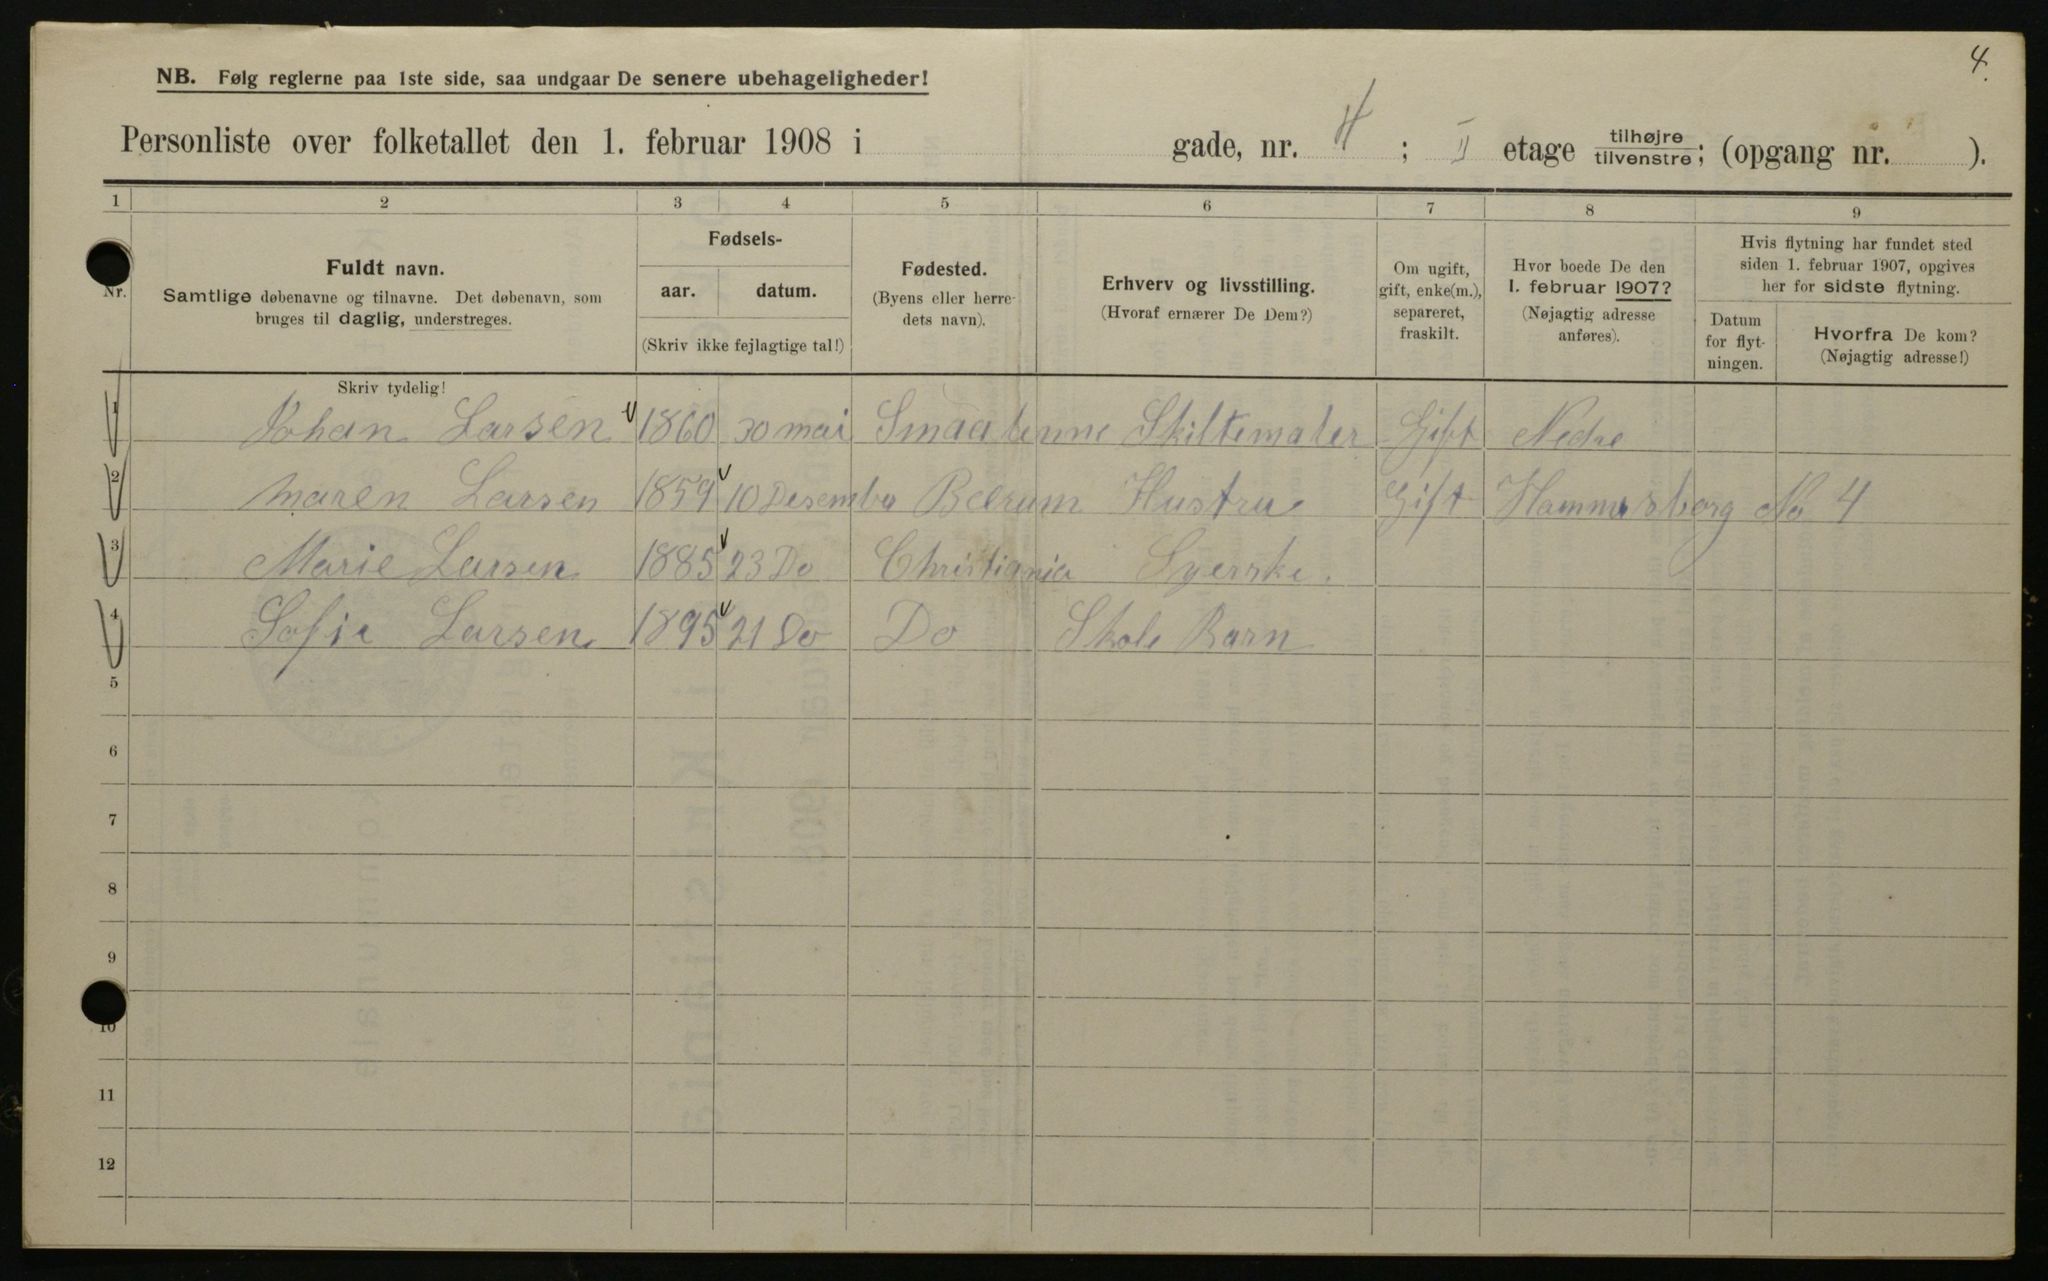 4.
NB. Følg reglerne paa 1ste side, saa undgaar De senere ubehageligheder!
Personliste over folketallet den 1. februar 1908 i gade, nr. 4 ; II etage tilhøjre tilvenstre; (opgang nr. ).
1 2 3 4 5 6 7 8 9
Nr.
Fuldt navn.
Samtlige døbenavne og tilnavne. Det døbenavn, som
bruges til daglig, understreges.
Skriv tydelig!
Fødsels-
aar. datum.
(Skriv ikke fejlagtige tal!)
Fødested.
(Byens eller herre-
dets navn).
Erhverv og livsstilling.
(Hvoraf ernærer De Dem?)
Om ugift,
gift, enke(m.),
separeret,
fraskilt.
Hvor boede De den
1. februar 1907?
(Nøjagtig adresse
anføres).
Hvis flytning har fundet sted
siden 1. februar 1907, opgives
her for sidste flytning.
Datum
for flyt-
ningen.
Hvorfra De kom?
(Nøjagtig adresse!)
1 Johan Larsen 1860 30 mai Smaalenne Skiltemaler Gift Nedre
2 Maren Larsen 1859 10 Desember Belrum Hustru Gift Hammersborg No 4
3 Marie Larsen 1885 23 Do Christiania Syerske.
4 Sofie Larsen 1895 21 Do Do Skole Barn
5
6
7
8
9
10
11
12